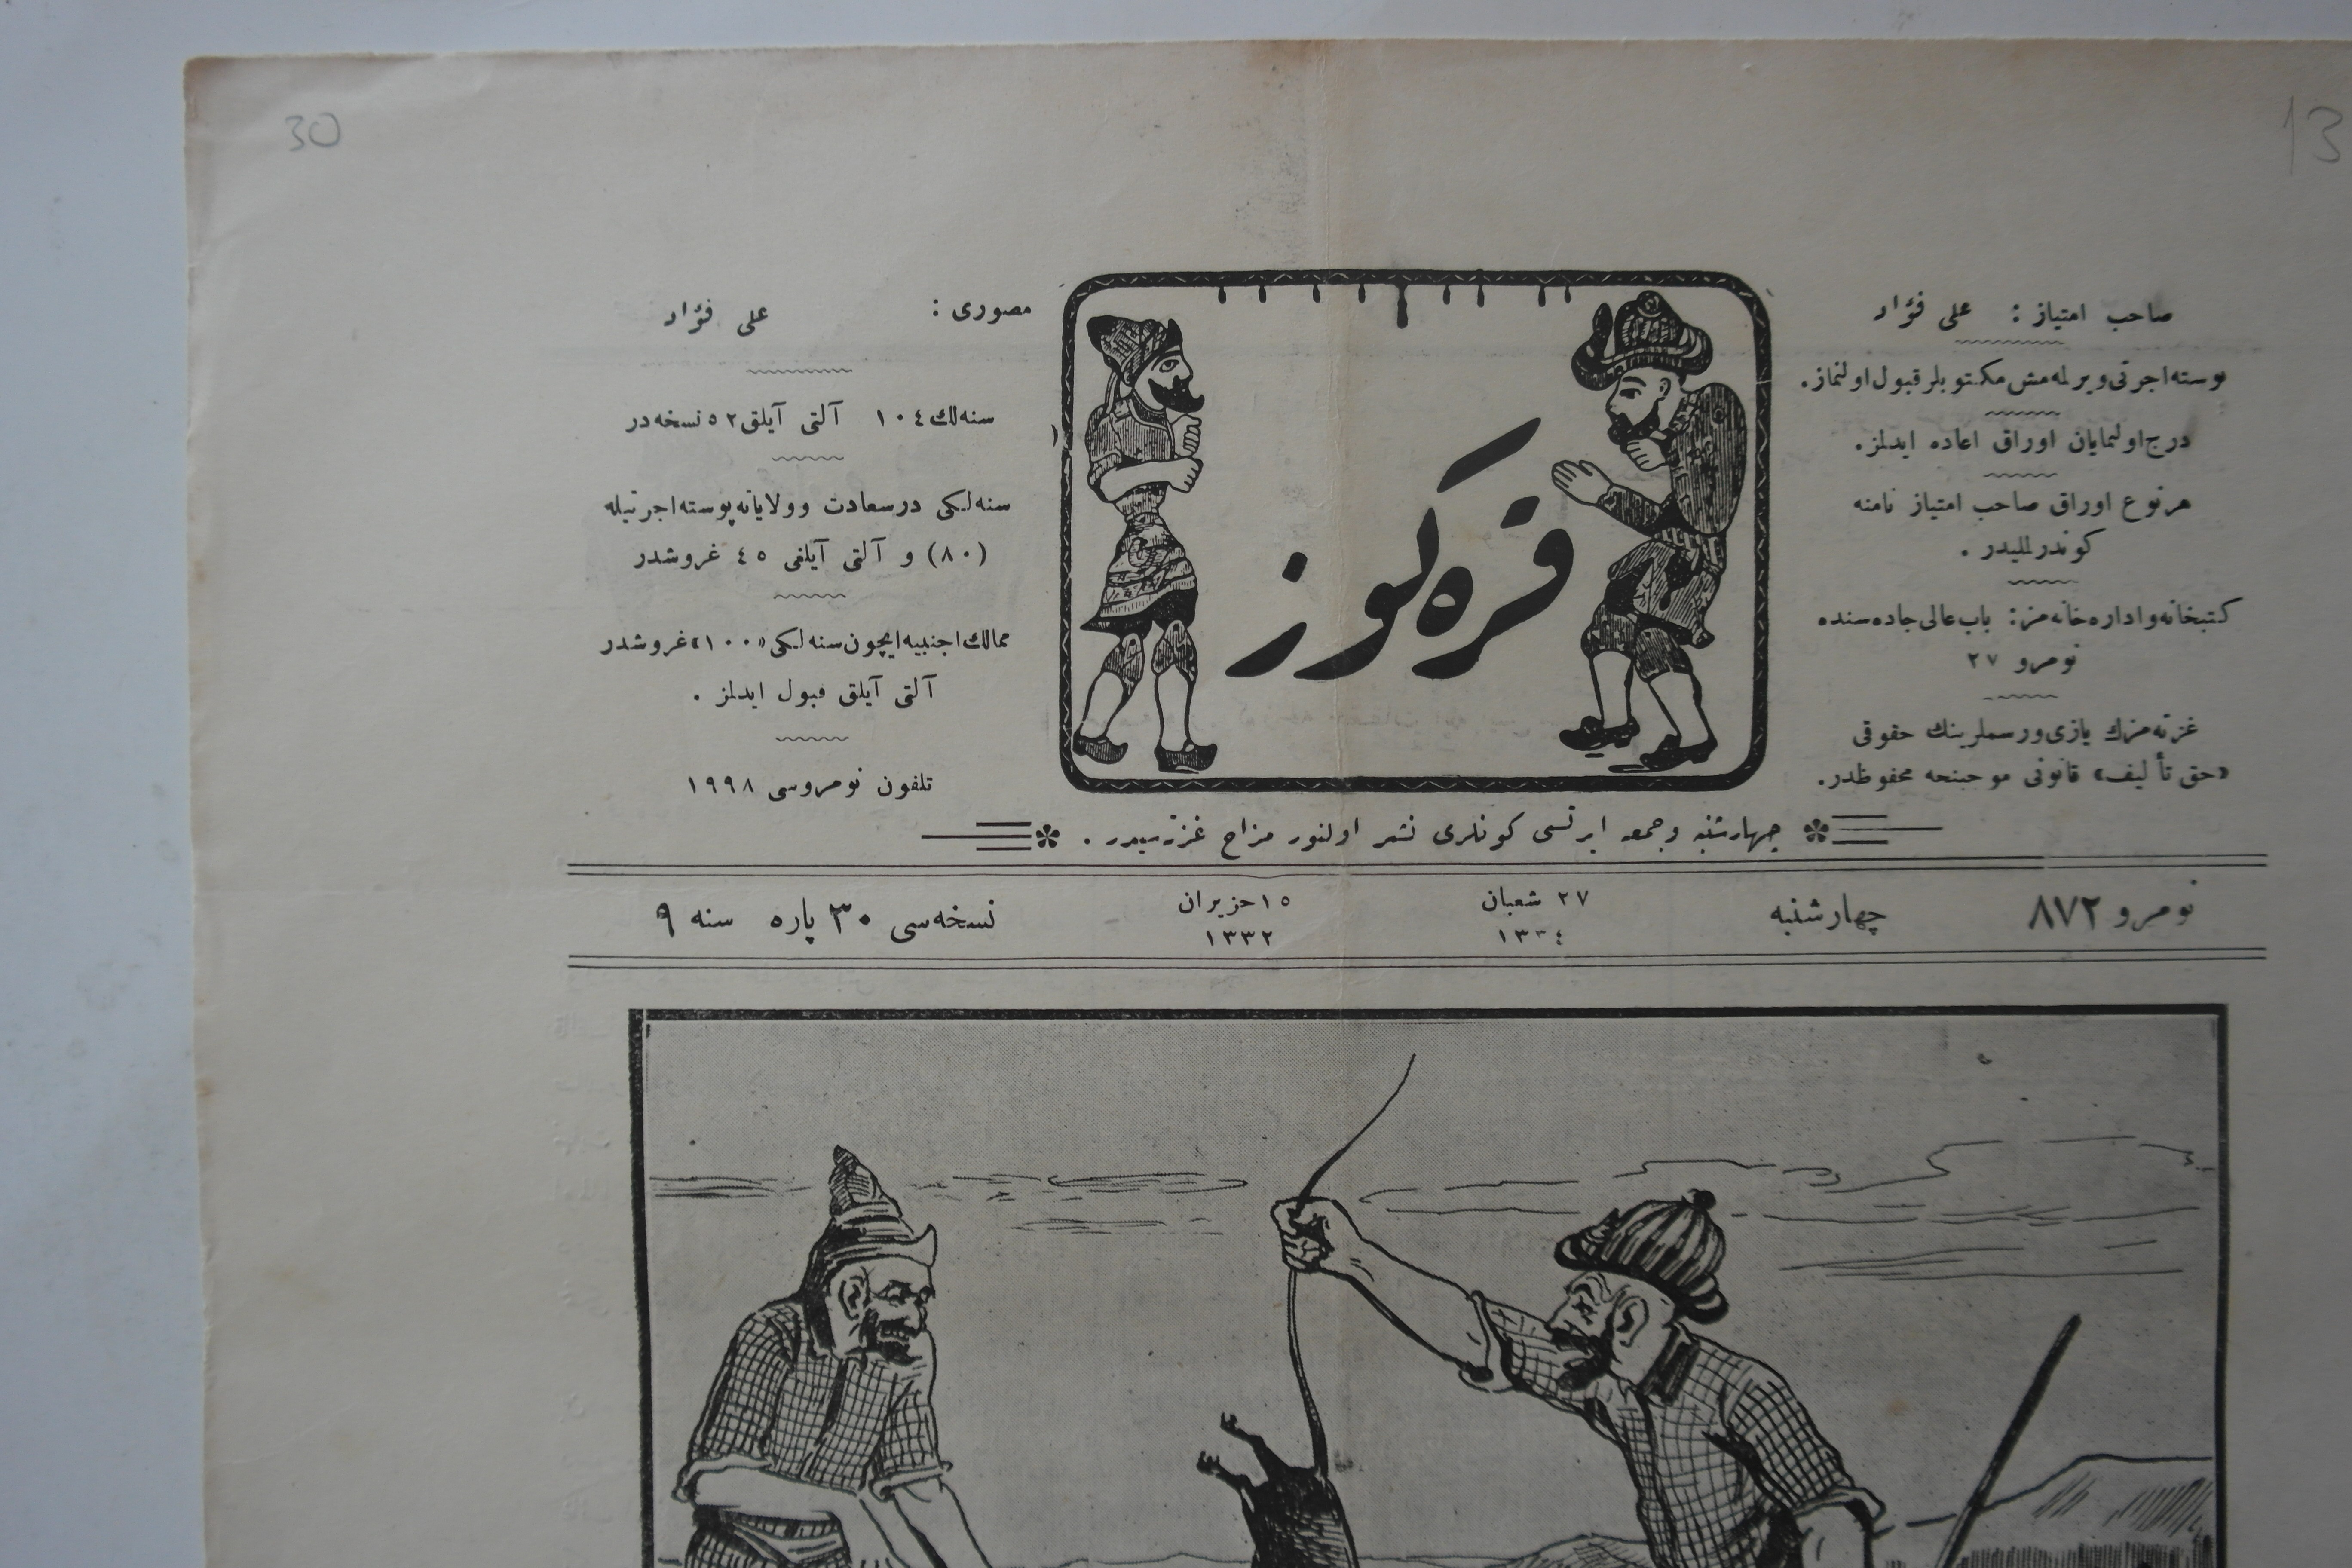 30
13
صاحب امتیاز : علی فؤاد
پوسته اجرتی ویرلمه‌مش مکتوبلر قبول اولنماز.
درج اولنمایان اوراق اعاده ایدلمز.
هر نوع اوراق صاحب امتیاز نامنه
کوندرلملیدر .
کتبخانه و اداره خانه مز : باب عالی جاده سنده
نومرو ٢٧
غزته مزك یازی و رسملرینك حقوقی
«حق تألیف» قانونی موجبنجه محفوظدر.
قره کوز
مصوری : علی فؤاد
سنه لك ١٠٤ آلتی آیلق ٥٢ نسخه در
سنه لکی درسعادت و ولایاته پوسته اجرتیله
(٨٠) و آلتی آیلغی ٤٥ غروشدر
ممالك اجنبیه ایچون سنه لکی «١٠٠» غروشدر
آلتی آیلق قبول ایدلمز .
تلفون نومروسی ١٩٩٨
چهارشنبه و جمعه ایرتسی کونلری نشر اولنور مزاح غزته سیدر .
نومرو ٨٧٢ چهارشنبه ٢٧ شعبان ١٣٣٤ ١٥ حزیران ١٣٣٢ نسخه سی ٣٠ پاره سنه ٩